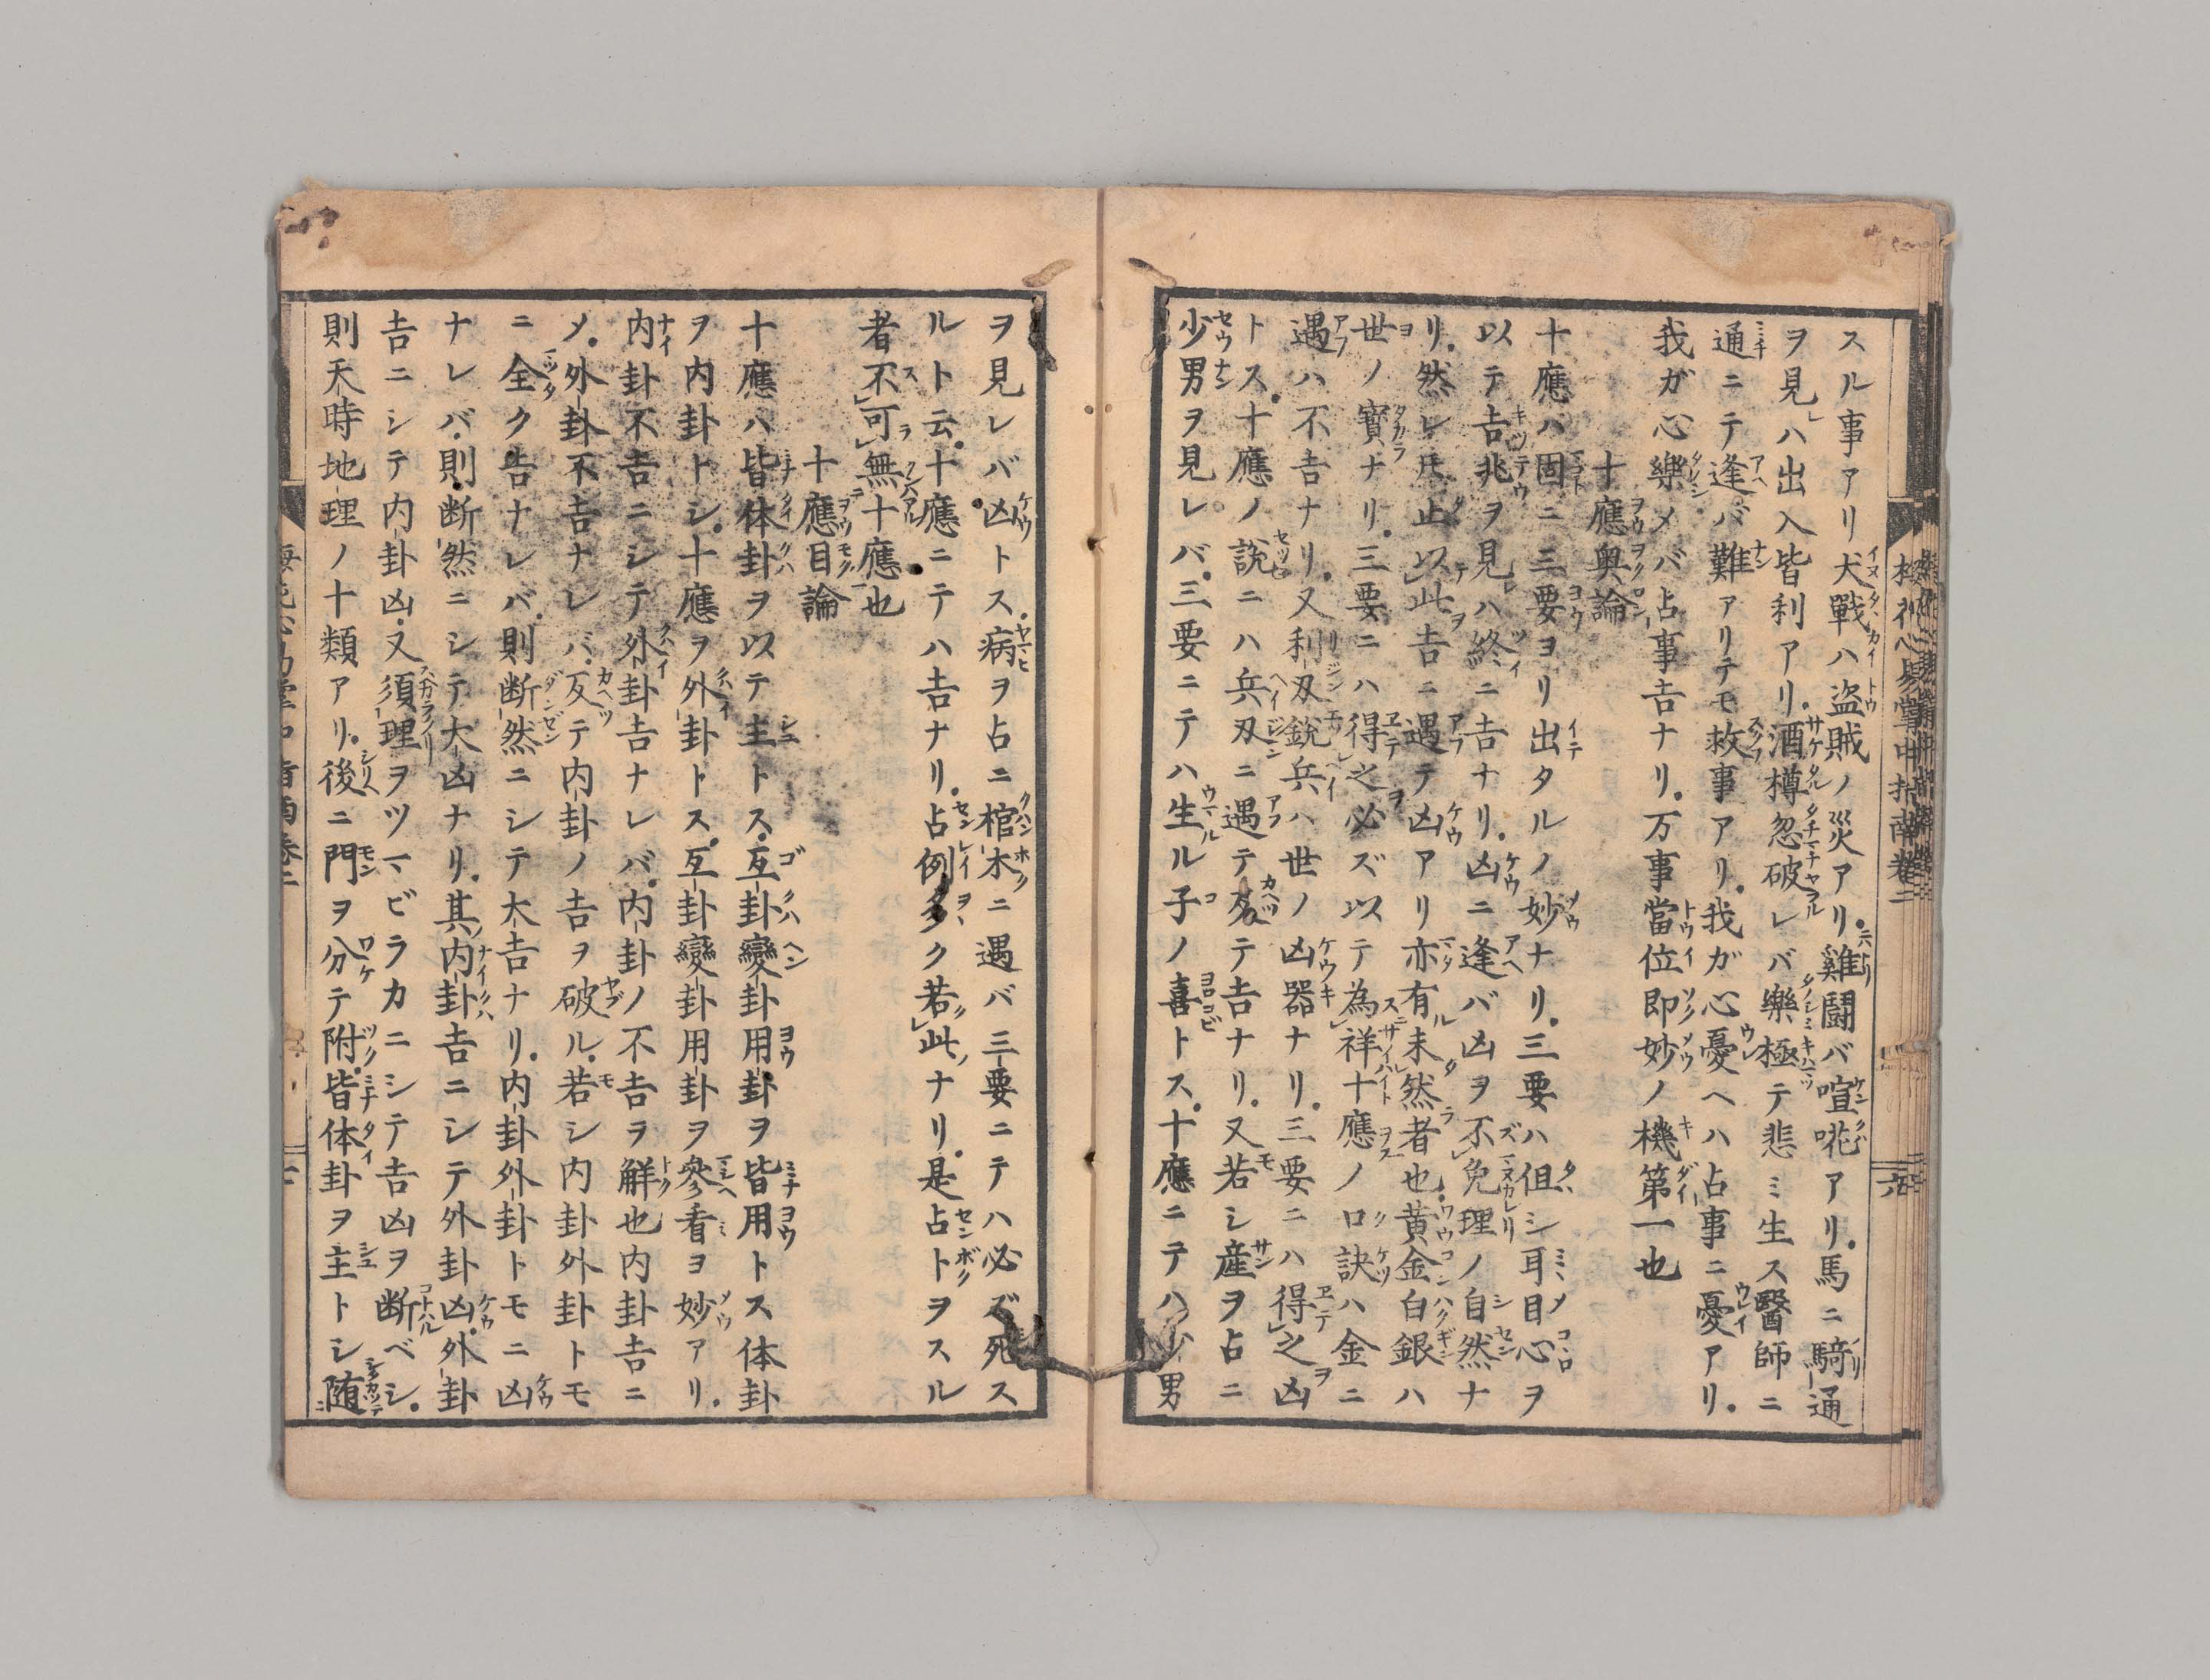 スル事アリ犬戰ハ盗賊ノ災アリ雞闘バ喧𠵅アリ馬ニ騎通
ヲ見レハ出入皆利アリ酒樽忽破レバ樂極テ悲ミ生ス醫師ニ
通ニテ逢バ難アリテモ救事アリ我ガ心憂ヘハ占事ニ憂アリ
我ガ心樂メバ占事吉ナリ万事當位即妙ノ機第一也
十應奥論
十應ハ固ニ三要ヨリ出タルノ妙ナリ三要ハ但シ耳目心ヲ
以テ吉兆ヲ見レハ終ニ吉ナリ凶ニ逢バ凶ヲ不免理ノ自然ナ
リ然レ𪜈止以此吉ニ遇テ凶アリ亦有未然者也黄金白銀ハ
世ノ寳ナリ三要ニハ得之必ズ以テ為祥十應ノ口訣ハ金ニ
遇ハ不吉ナリ又利刄銳兵ハ世ノ凶器ナリ三要ニハ得之凶
トス十應ノ說ニハ兵刄ニ遇テ友テ吉ナリ又若シ産ヲ占ニ
少男ヲ見レバ三要ニテハ生ル子ノ喜トス十應ニテハ少男
ヲ見レバ凶トス病ヲ占ニ棺木ニ遇バ三要ニテハ必ズ死ス
ルト云十應ニテハ吉ナリ占例多ク若此ナリ是占トヲスル
者不可無十應也
十應目論
十應ハ皆体卦ヲ以テ主トス互卦變卦用卦ヲ皆用トス体卦
ヲ内卦トシ十應ヲ外卦トス互卦變卦用卦ヲ參看ヨ妙アリ
内卦不吉ニシテ外卦吉ナレバ内卦ノ不吉ヲ解也内卦吉ニ
メ外卦不吉ナレバ反テ内卦ノ吉ヲ破ル若シ内卦外卦トモ
ニ全ク吉ナレバ則断然ニシテ大吉ナリ内卦外卦トモニ凶
ナレバ則断然ニシテ大凶ナリ其内卦吉ニシテ外卦凶外卦
吉ニシテ内卦凶又須理ヲツマビラカニシテ吉凶ヲ断ベシ
則天時地理ノ十類アリ後ニ門ヲ分テ附皆体卦ヲ主トシ随